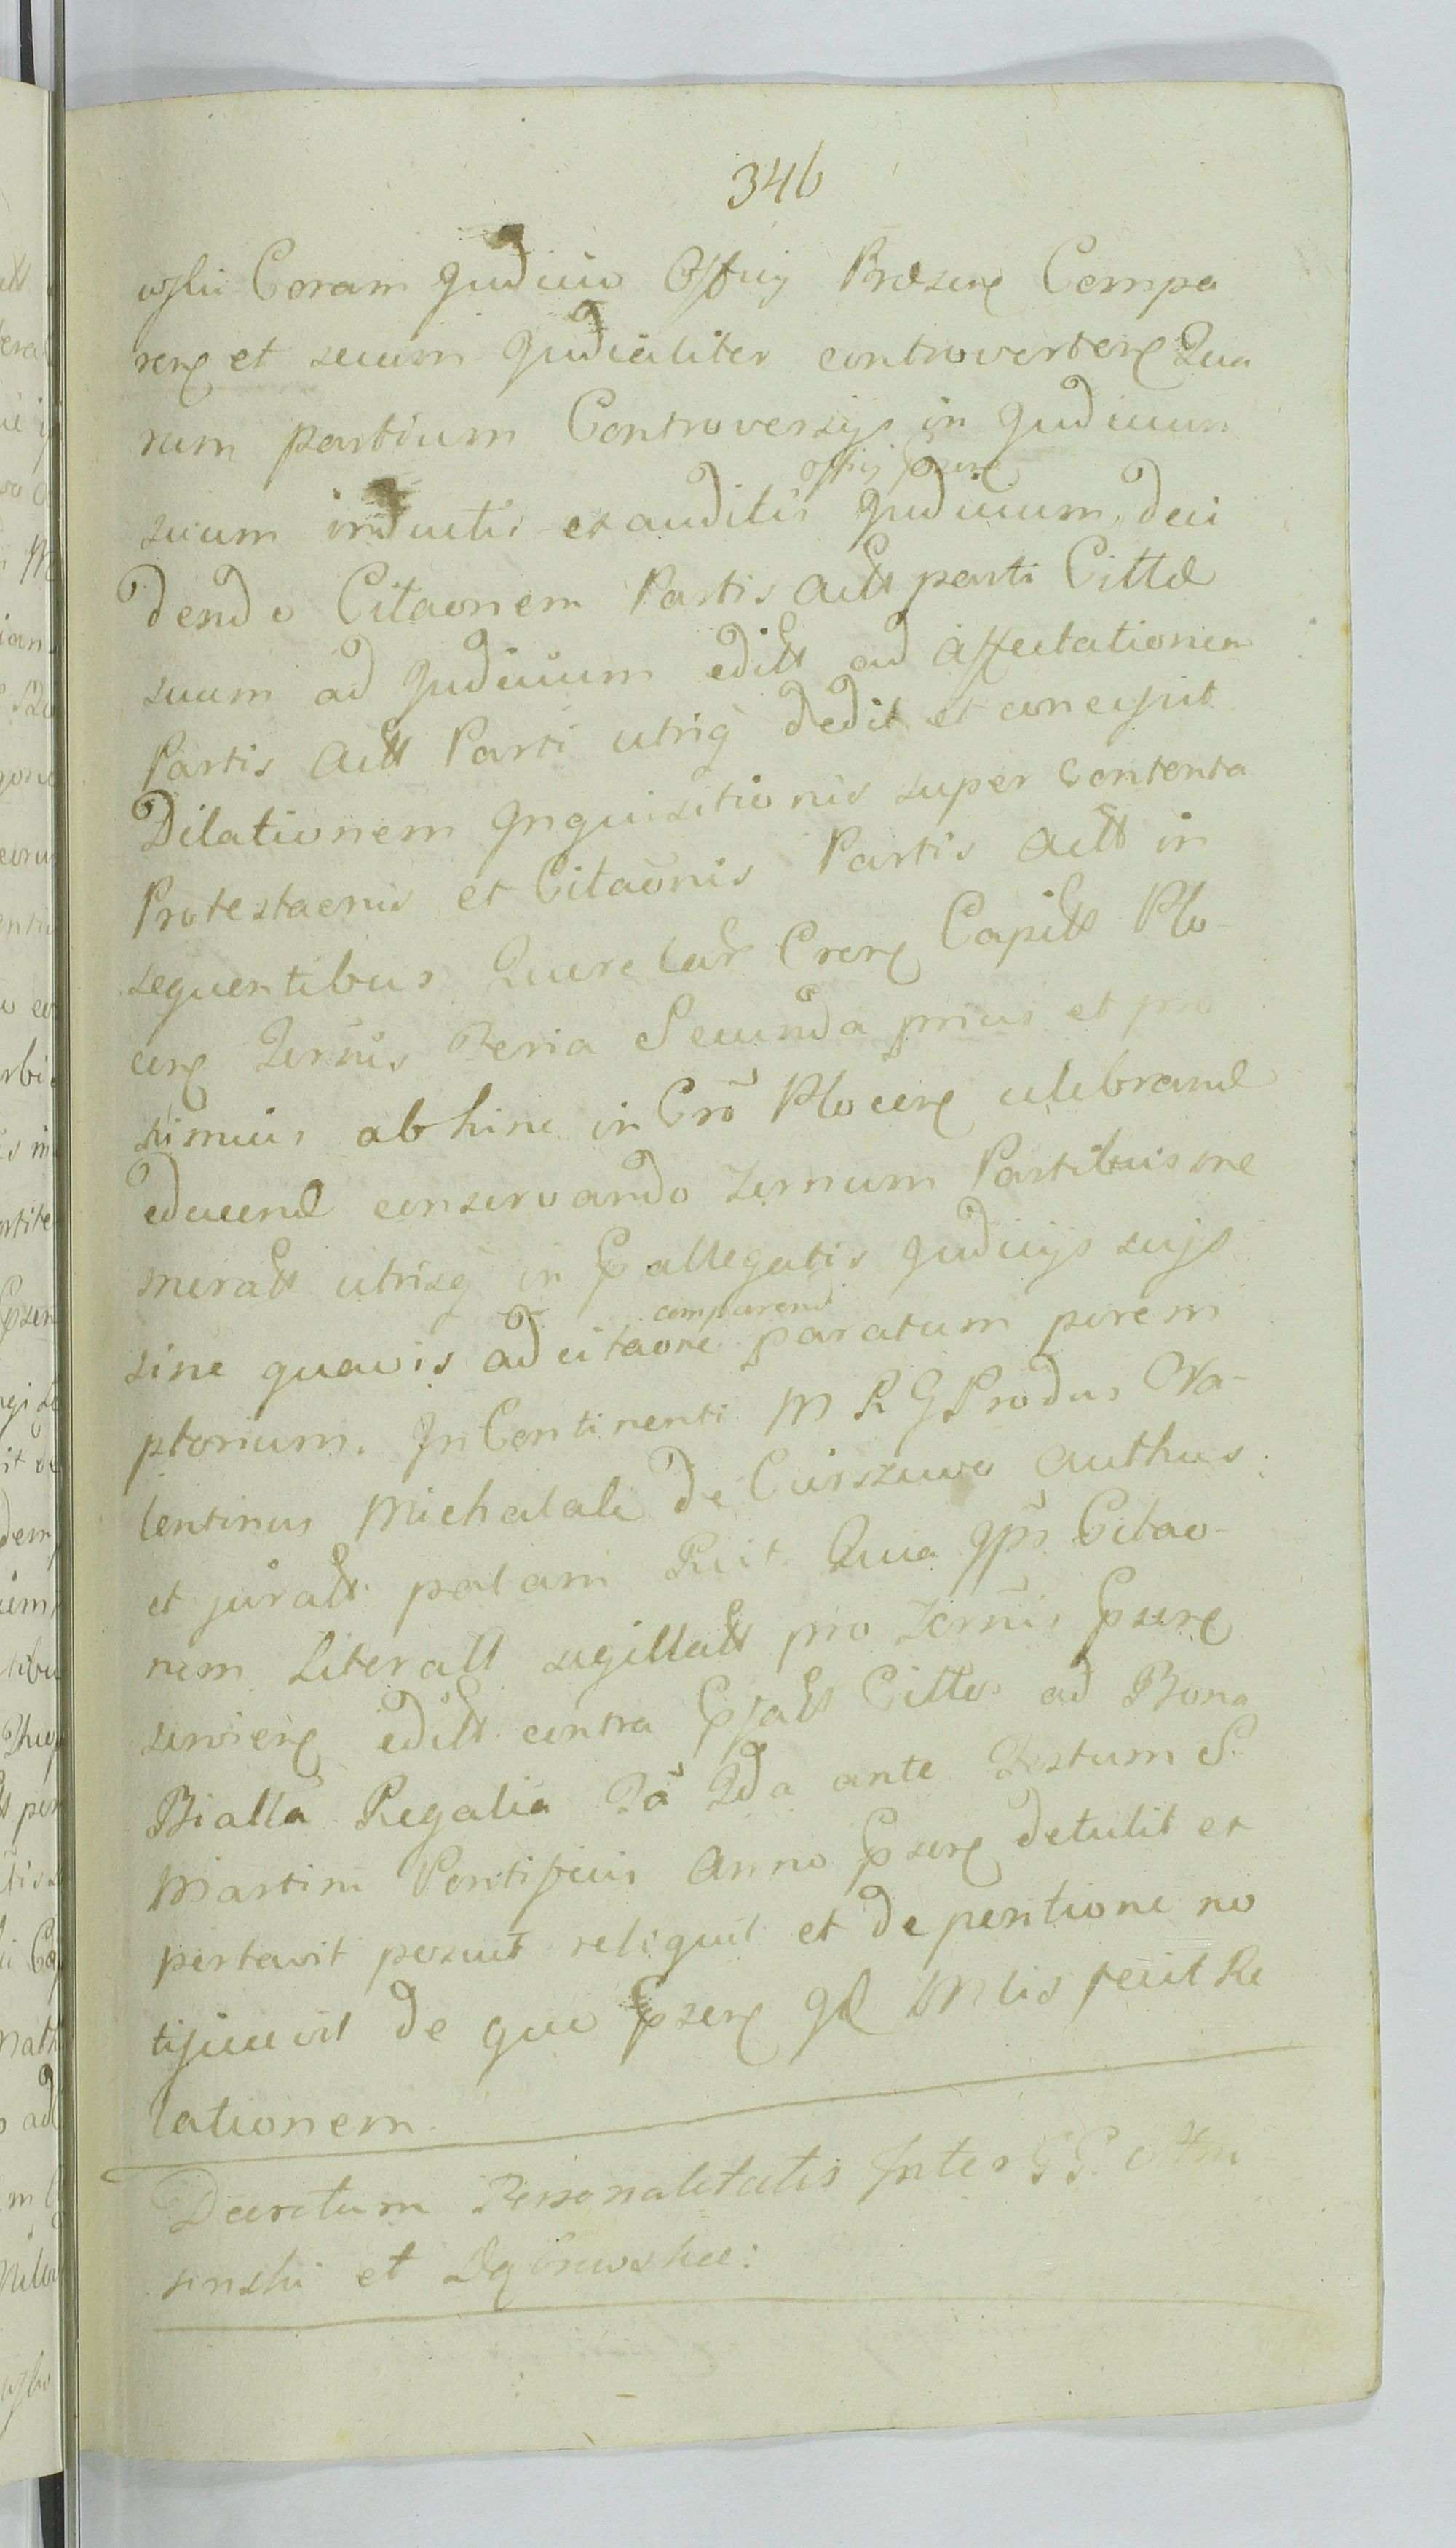 346
wski Coram Judicio Officij Præsene Compa
rene et secum Judicialiter controvertene Qua
rum partium Controversijs in Judicium
officij psene
suum inductis exauditis Judicium, deci
dendo Citaonem Partis Actt parti Cittæ
suum ad Judicium editt ad affectationem
Partis Actt Parti utriq dedit et concessit
Dilationem Inquisitionis super Contenta
Protestaonis et Citaõnis Partis Actt in
sequentibus Querelar Crene Capitt Plo-
cene Zernis Feria Secunda prius et pro
ximius abhinc in Crõ Plocene celebrand
educend conservando Zernum Partibus me
moratt utrisq in pallegatis Judicijs suis
comparend
sine quavis adcitaone paratum perem
ptorium. In Continenti M R G Produs Va-
lentinus Michalak de Ciurszewo authus
et juratt palam Rcit. Quia Ips Citao-
nem Literatt sigillatt pro Zernis psene
serviene editt contra pfatt Cittos ad Bona
Bialla Regalia Za Qda ante Festum S.
Martini Pontificis Anno psene detulit et
portavit posuit reliquit et de positione no
tificavit de quo psene Jd Mtis fecit Re
lationem
Decretum Personalitatis Inter GG.
sinski et Dąbrowskie: